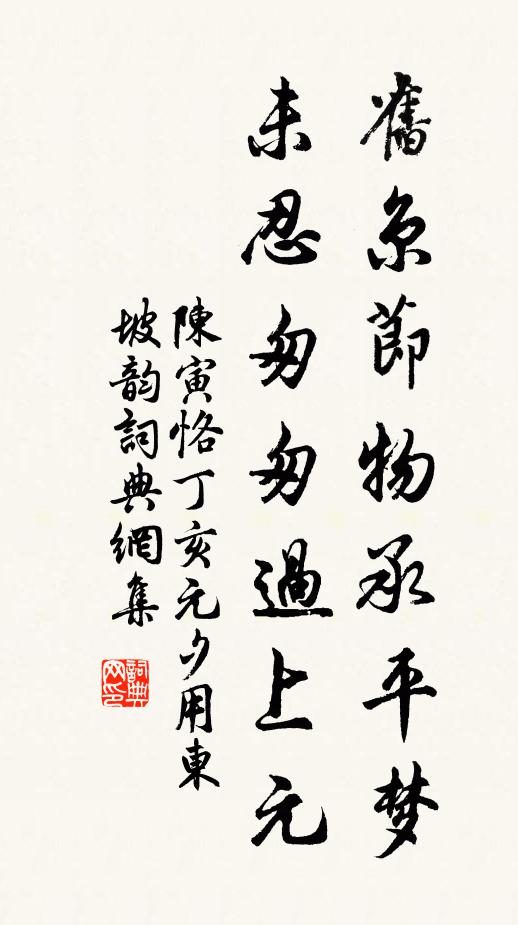 舊京節物承平梦
未忍匆匆過上元
陳寅恪丁亥元夕用東
坡韵詞典網集
詞典网印